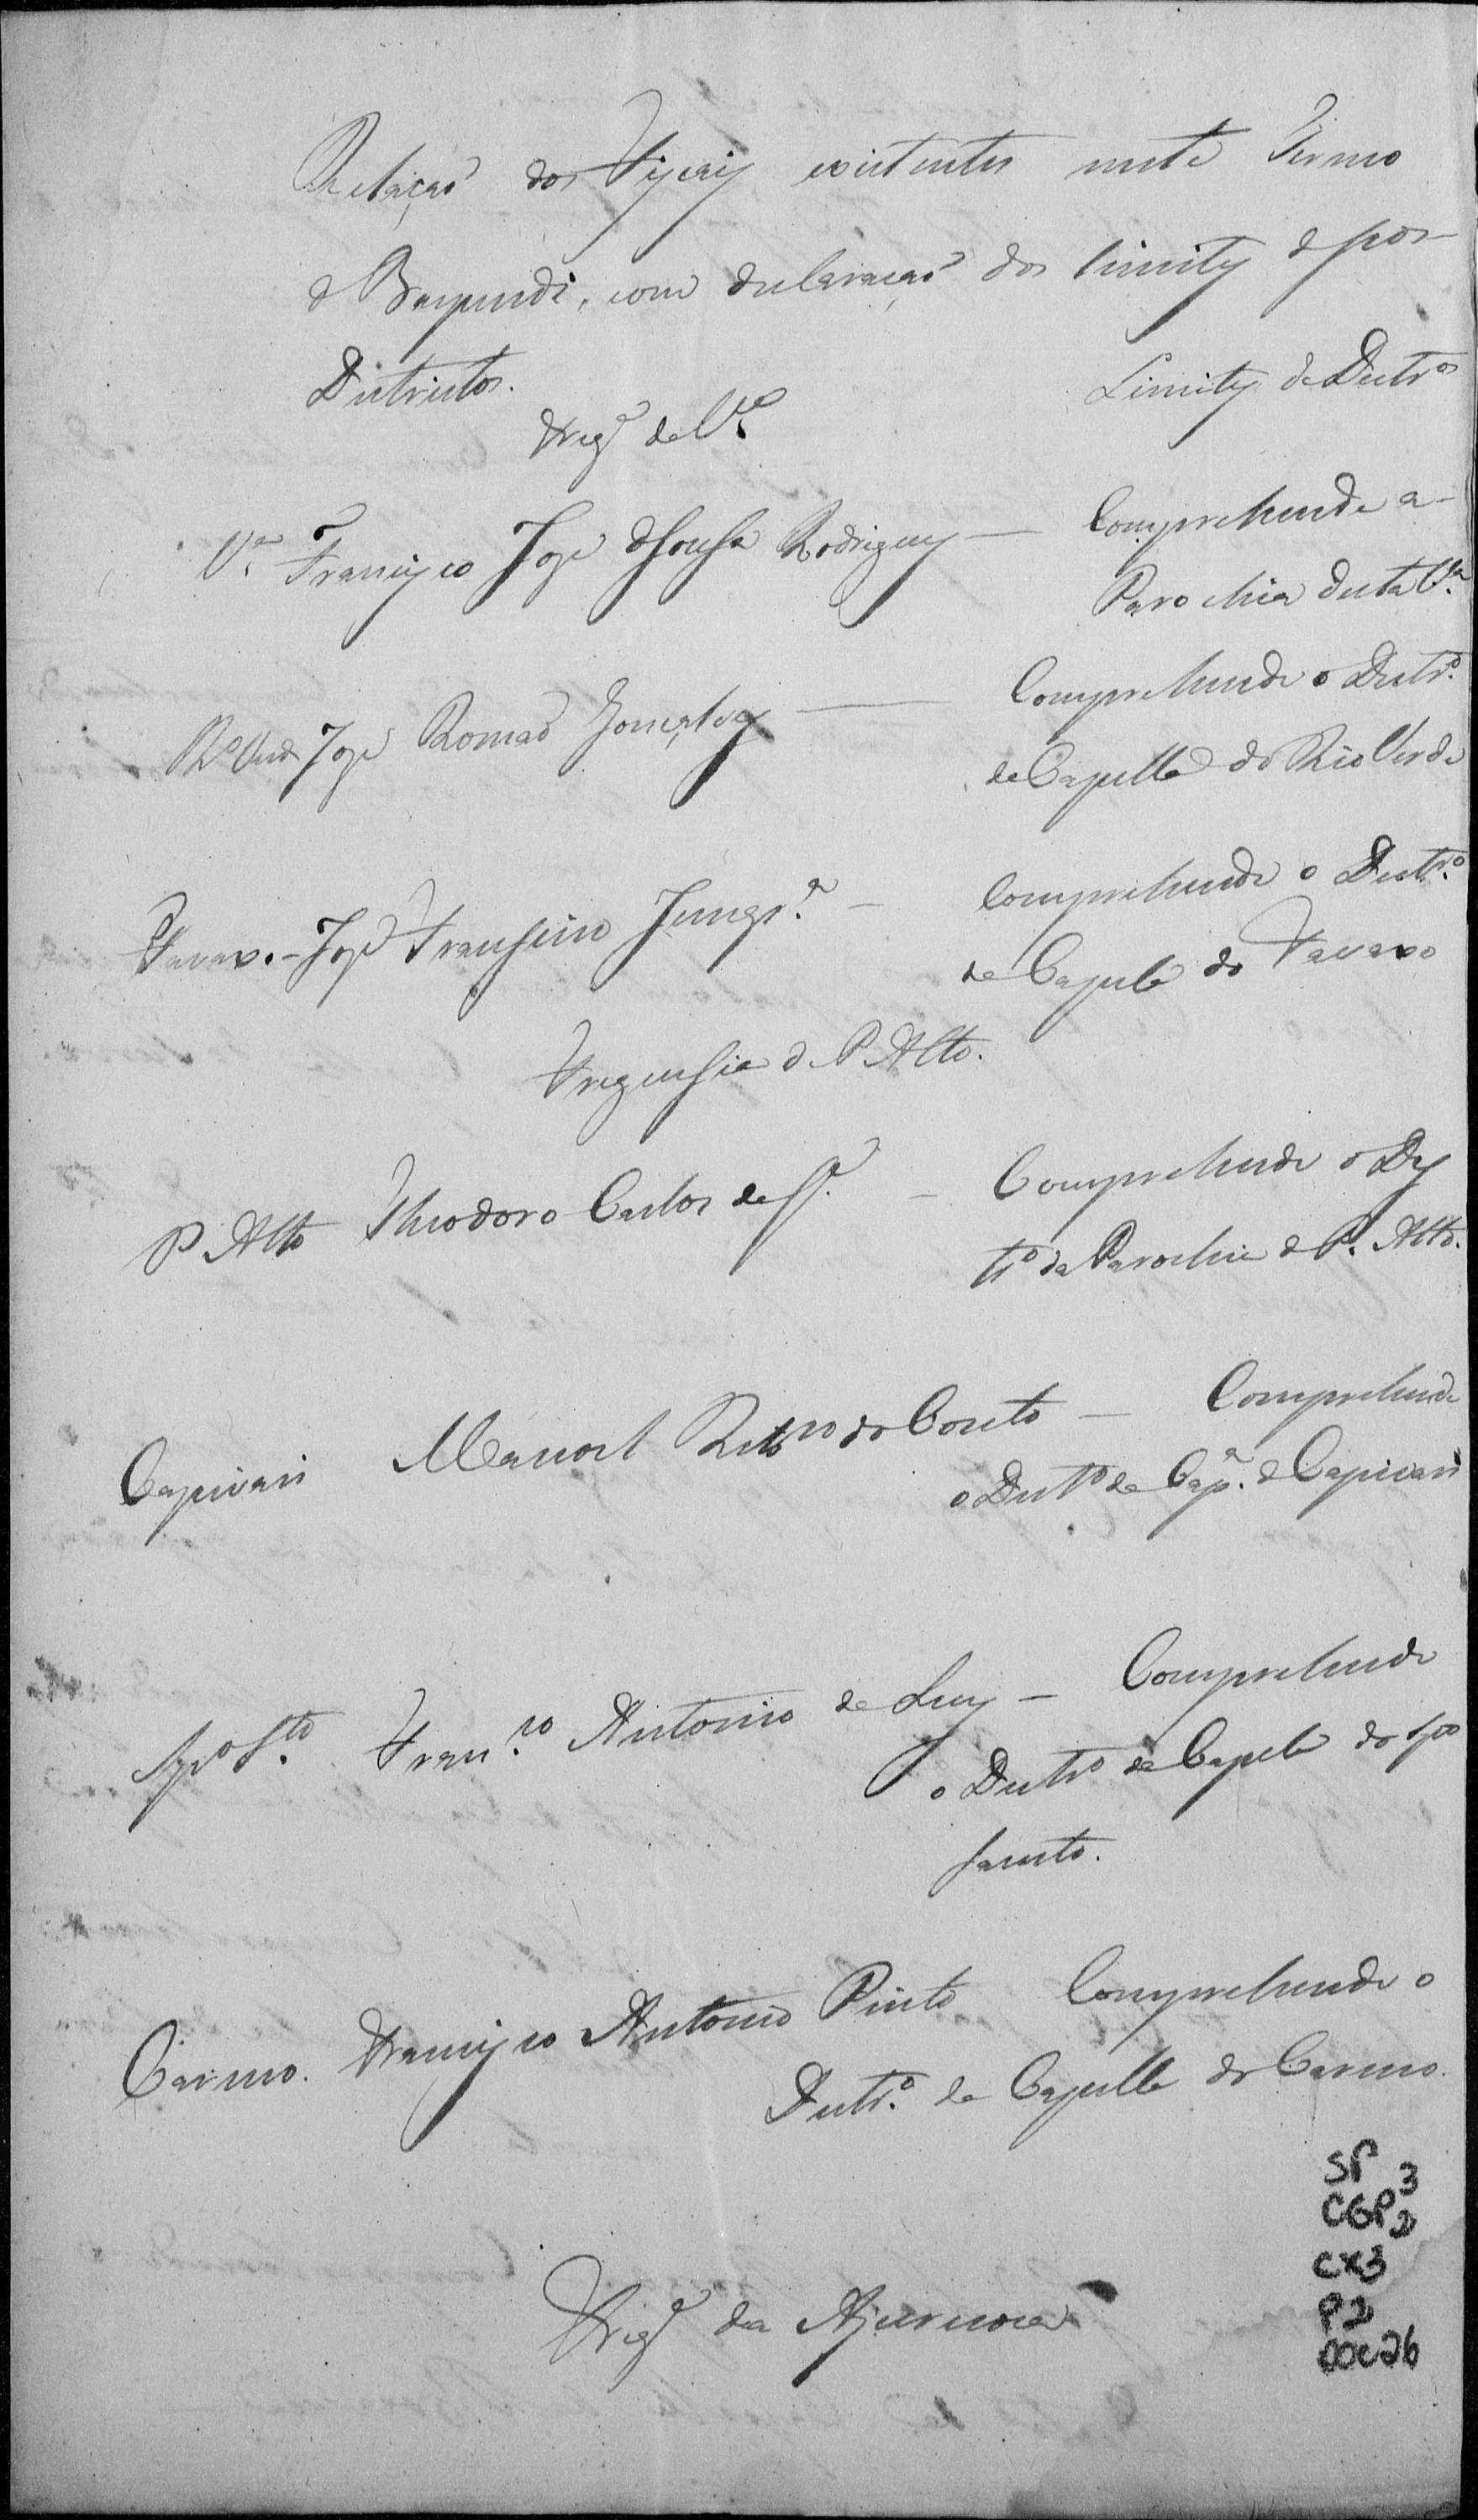 Relação dos Fiscais existentes neste Termo
de Baependi, com declaração dos limites de seos
Districtos.
Limites de Destros
Freg.ª da V.ª
V.ª Francisco Joze de Sousa Rodrigues — Comprehende a
Parochia desta V.ª
R.º Verde Joze Romão Gonçalves — Comprehende o Destr.º
da Capella do Rio Verde
Favaxo - Joze Franscisco Junqr.ª — Comprehende o Destr.º
da Capela do Favaxo
Fregucsia de P. Alto.
P Alto Theodoro Carlos da S.ª — Comprehende o Dis
tr.º da Parochia de P. Alto.
Capivari Manoel Ribro do Couto — Comprehende
o Destr.º da Cap.ª de Capivari
Spo Sto. Fran.co Antonio da Luz — Comprehende
o Destr.º da Capela do Spo
Santo.
Carmo. Francisco Antonio Pinto Comprehende o
Destr.º da Capella do Carmo.
Freg.ª da Ajuruoca
SP 3
CGP 2
CX3
P2
DOC26